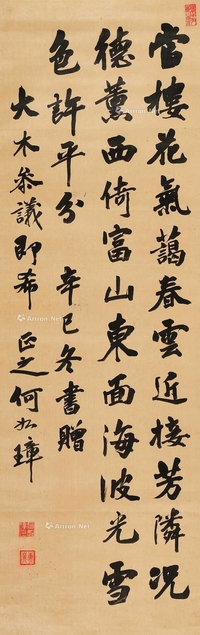 官樓花氣藹春雲近接芳隣况
德薰西倚富山東面海波光雪
色許平分 辛巳冬書贈
大木参議即希 正之何如璋